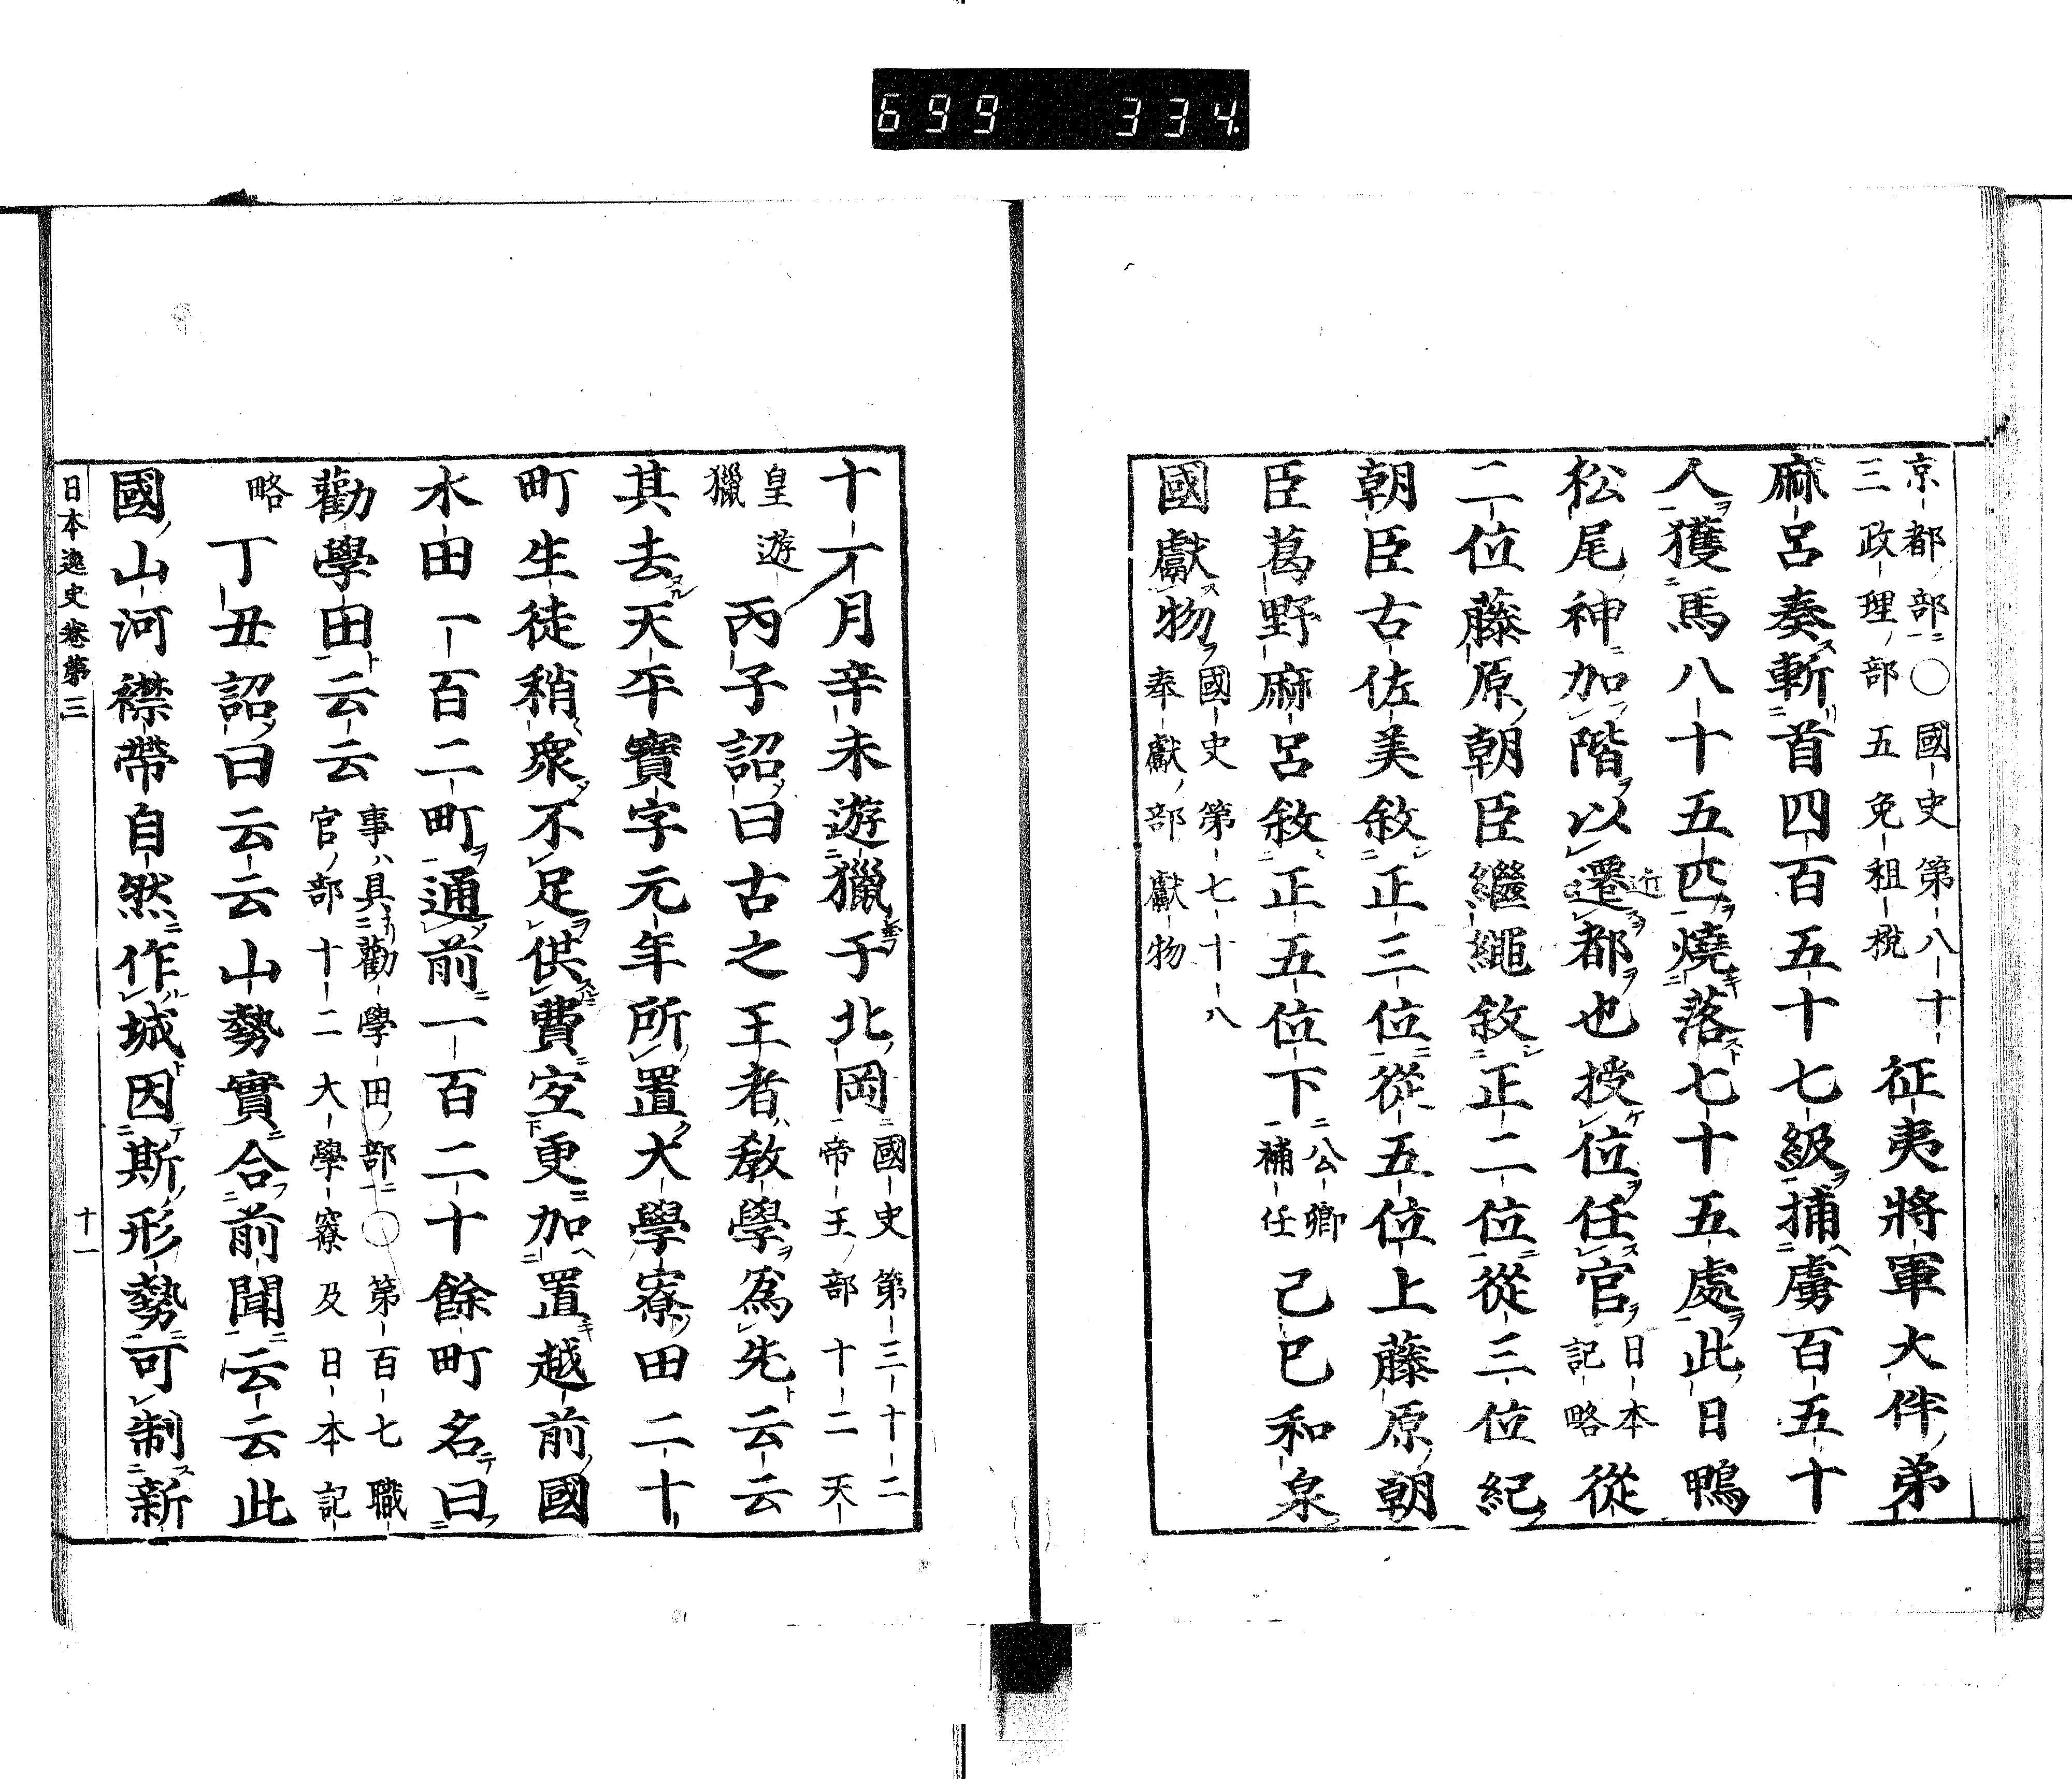 699 334.
京都部○國史第八十
三政理部五免租稅
征夷將軍大伴弟
麻呂奏斬首四百五十七級捕虜百五十
人獲馬八十五匹燒落七十五處此日鴨
松尾神加階以遷都也授位任官
近
日本
記略
從
二位藤原朝臣繼繩敘正二位從三位紀
朝臣古佐美敘正三位從五位上藤原朝
臣葛野麻呂敘正五位下
公卿
補任
己巳和泉
國獻物
國史第七十八
奉獻部獻物
十一月辛未遊獵于北岡
國史第三十二
帝王部十二天
皇遊
獵
丙子詔曰古之王者教學爲先云云
其去天平寶字元年所置大學寮田二十
町生徒稍衆不足供費宜更加置越前國
水田一百二町通前一百二十餘町名曰
勸學田云云
事具勸學田部○第百七職
官部十二大學寮及日本記
略
丁丑詔曰云云山勢實合前聞云云此
國山河襟帶自然作城因斯形勢可制新
日本逸史卷第三
十一